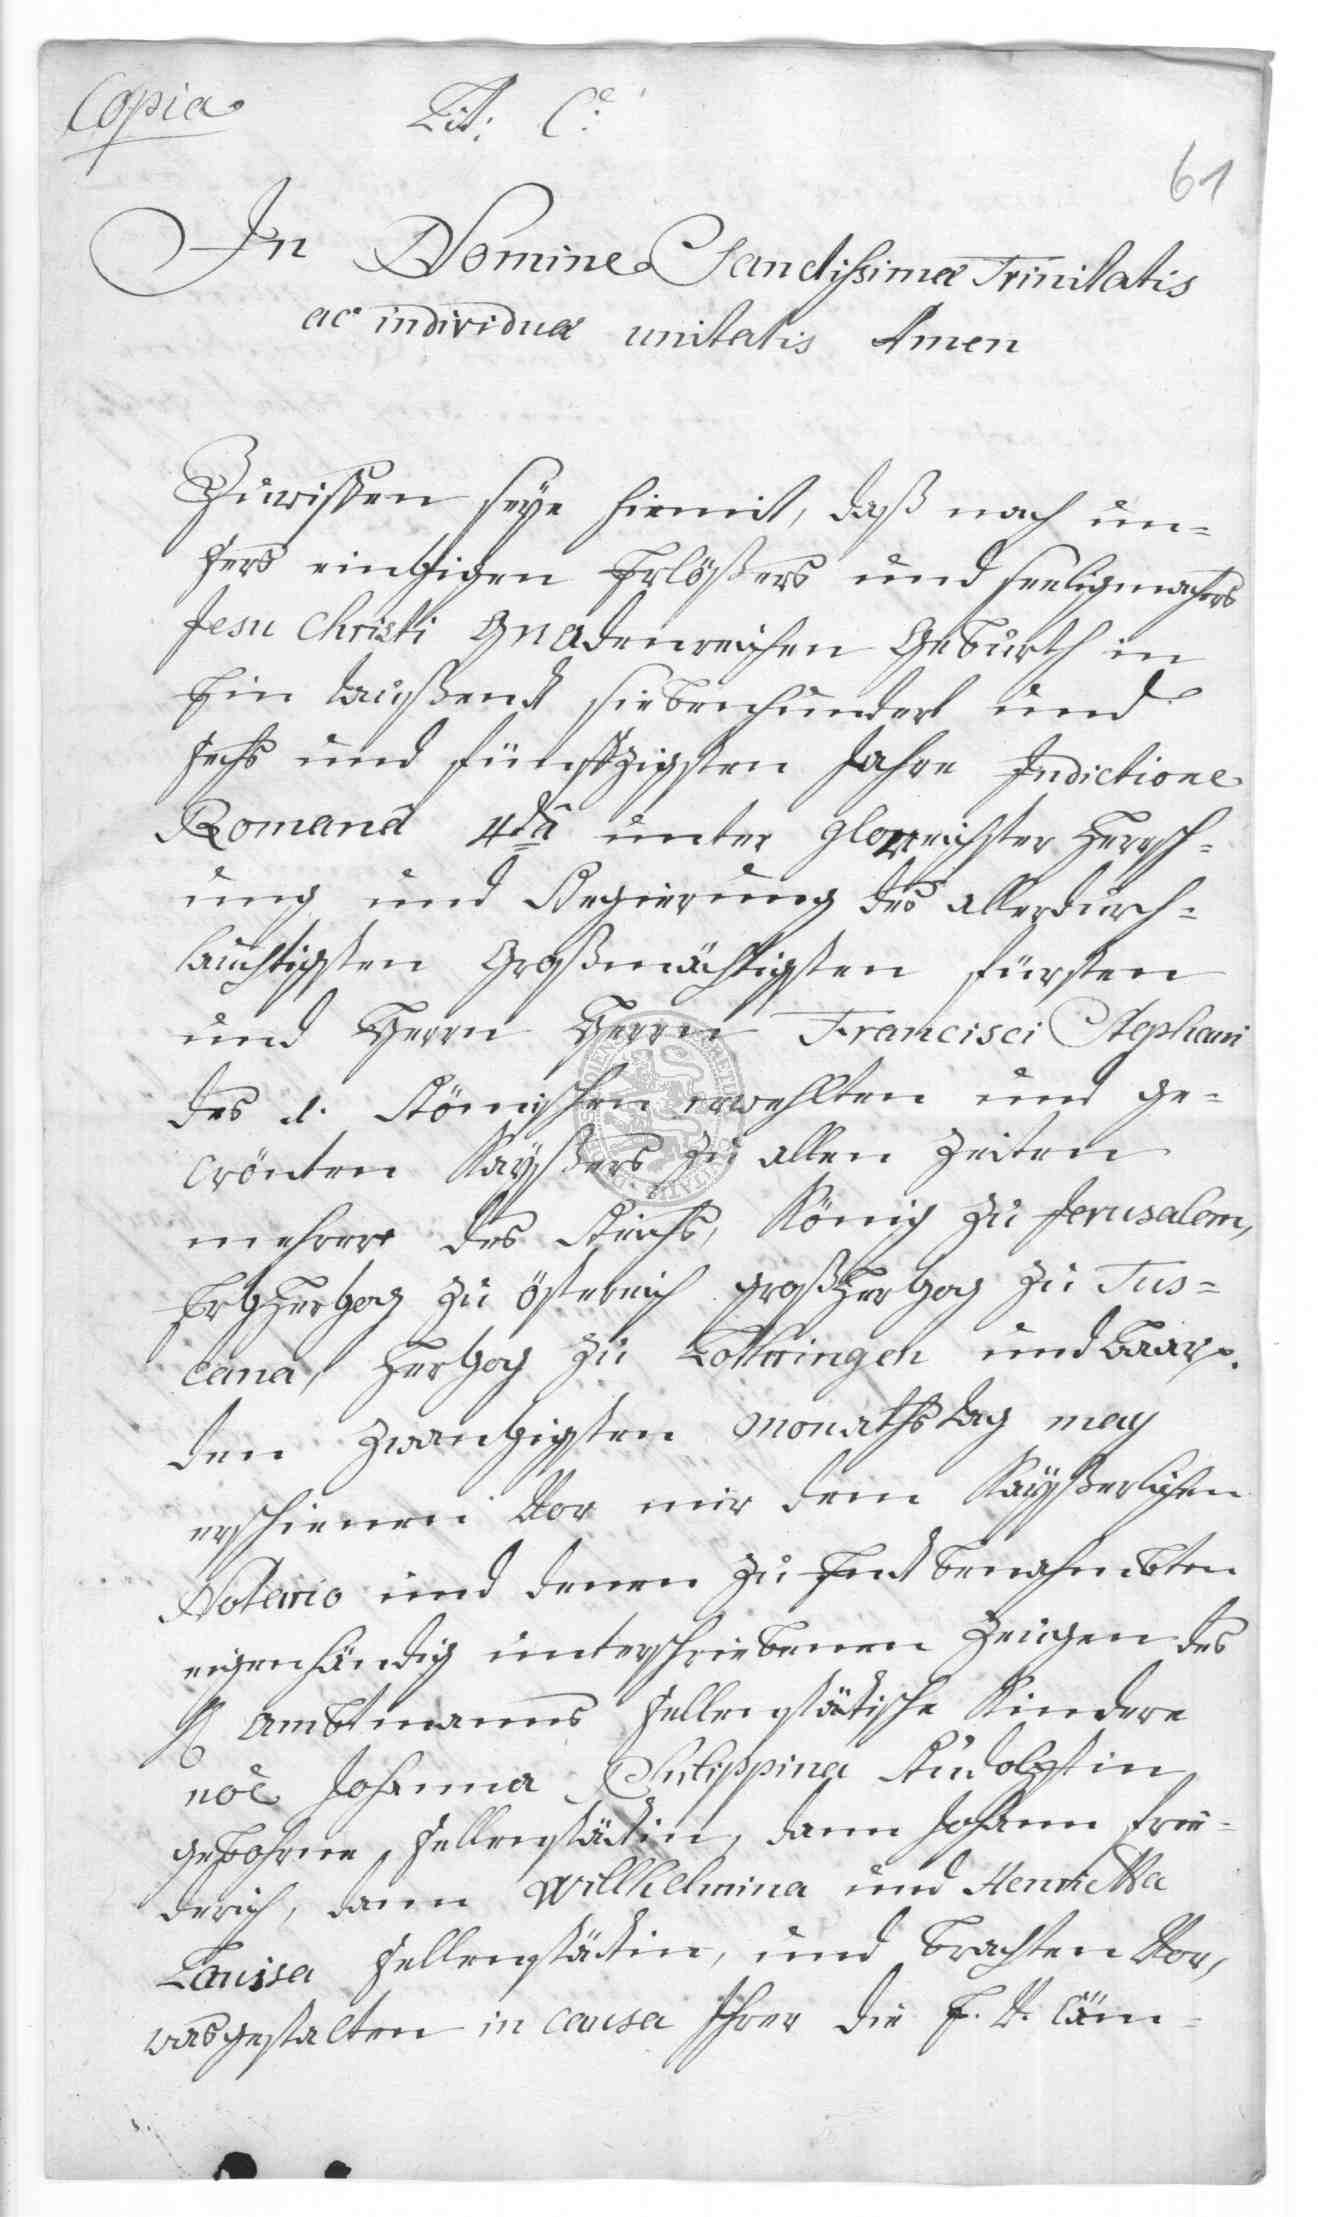 Copia
Lit: C:
61
In Nomine Sanctissimæ Trinitatis
ac individuæ unitatis Amen
Zuwissen seye hiemit, daß nach un=
sers eintzigen Erlößers und seeligmachers
Jesu Christi Gnadenreichen Geburth in
Ein taußendt siebenhundert und
sechs und fünfftzigsten Jahre Indictione
Romanâ 4tâ unter glorreichster Herrsch=
ung und Regierung des allerdurch=
lauchtigsten Großmächtigsten fürsten
und Herrn Herrn Francisci Stephani
des Römischen erwehlten und ge=
crönten Kayßers zu allen Zeiten
mehrere des Reichs, König zu Jerusalem,
Ertzhertzog zu östereich großhertzog zu Tus=
cana, Hertzog zu Lothringen und Baar
den zwantzigsten Monathstag may
erschienen Vor mir dem Kayßerlichen
Notario und denen zu Endt benahmbten
eigenhändig unterschriebenen Zeugen des
H ambtmanns Fellenstättische Kindere
noê Johanna Philippina Rudolphin
gebohrne Fellenstättin, dann Johann Frie=
derich, dann Willhelmina und Henrietta
Louisa Fellenstättin, und brachten Vor,
wasgestalten in causa Ihrer die F. W. Cäm=